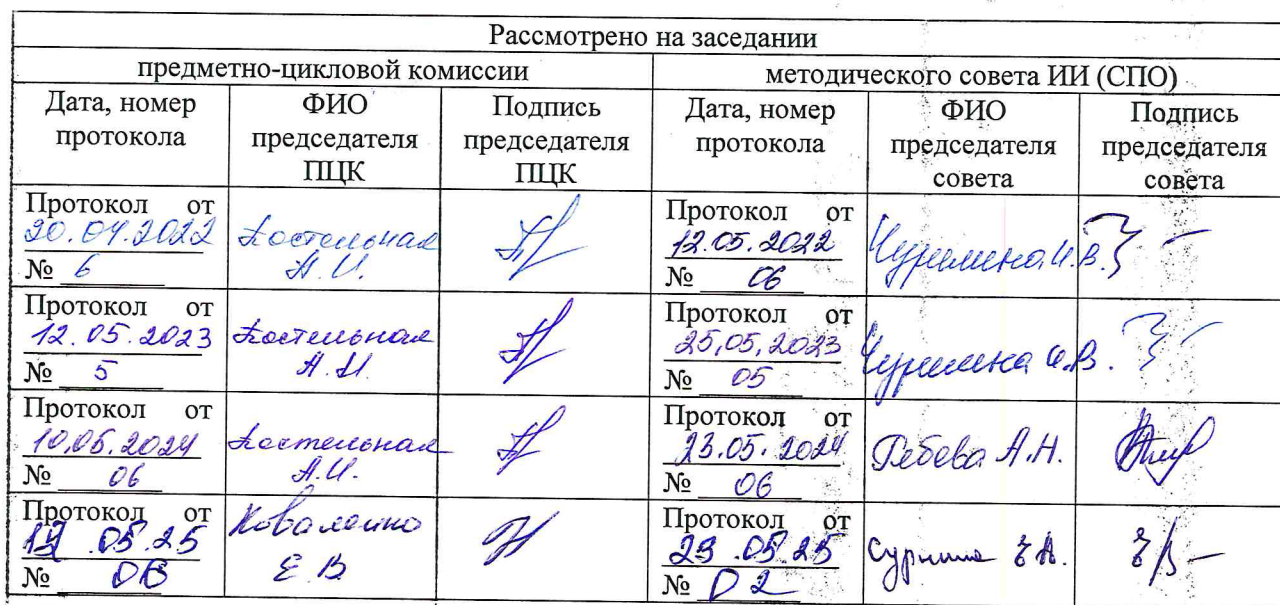 Рассмотрено на заседании
предметно-цикловой комиссии
методического совета ИИ (СПО)
Дата, номер
протокола
ФИО
председателя
ПЦК
Подпись
председателя
ПЦК
Дата, номер
протокола
ФИО
председателя
совета
Подпись
председателя
совета
Протокол от
20.04.2022
№ 6
Костельная
А.И.
Протокол от
12.05.2022
№ 06
Чурилина И.В.
Протокол от
12.05.2023
№ 5
Костельная
А.И.
Протокол от
25.05.2023
№ 05
Чурилина И.В.
Протокол от
10.05.2024
№ 06
Костельная
А.И.
Протокол от
23.05.2024
№ 06
А.Н.
Протокол от
.05.25
№
Е.В.
Протокол от
29.05.25
№ 02